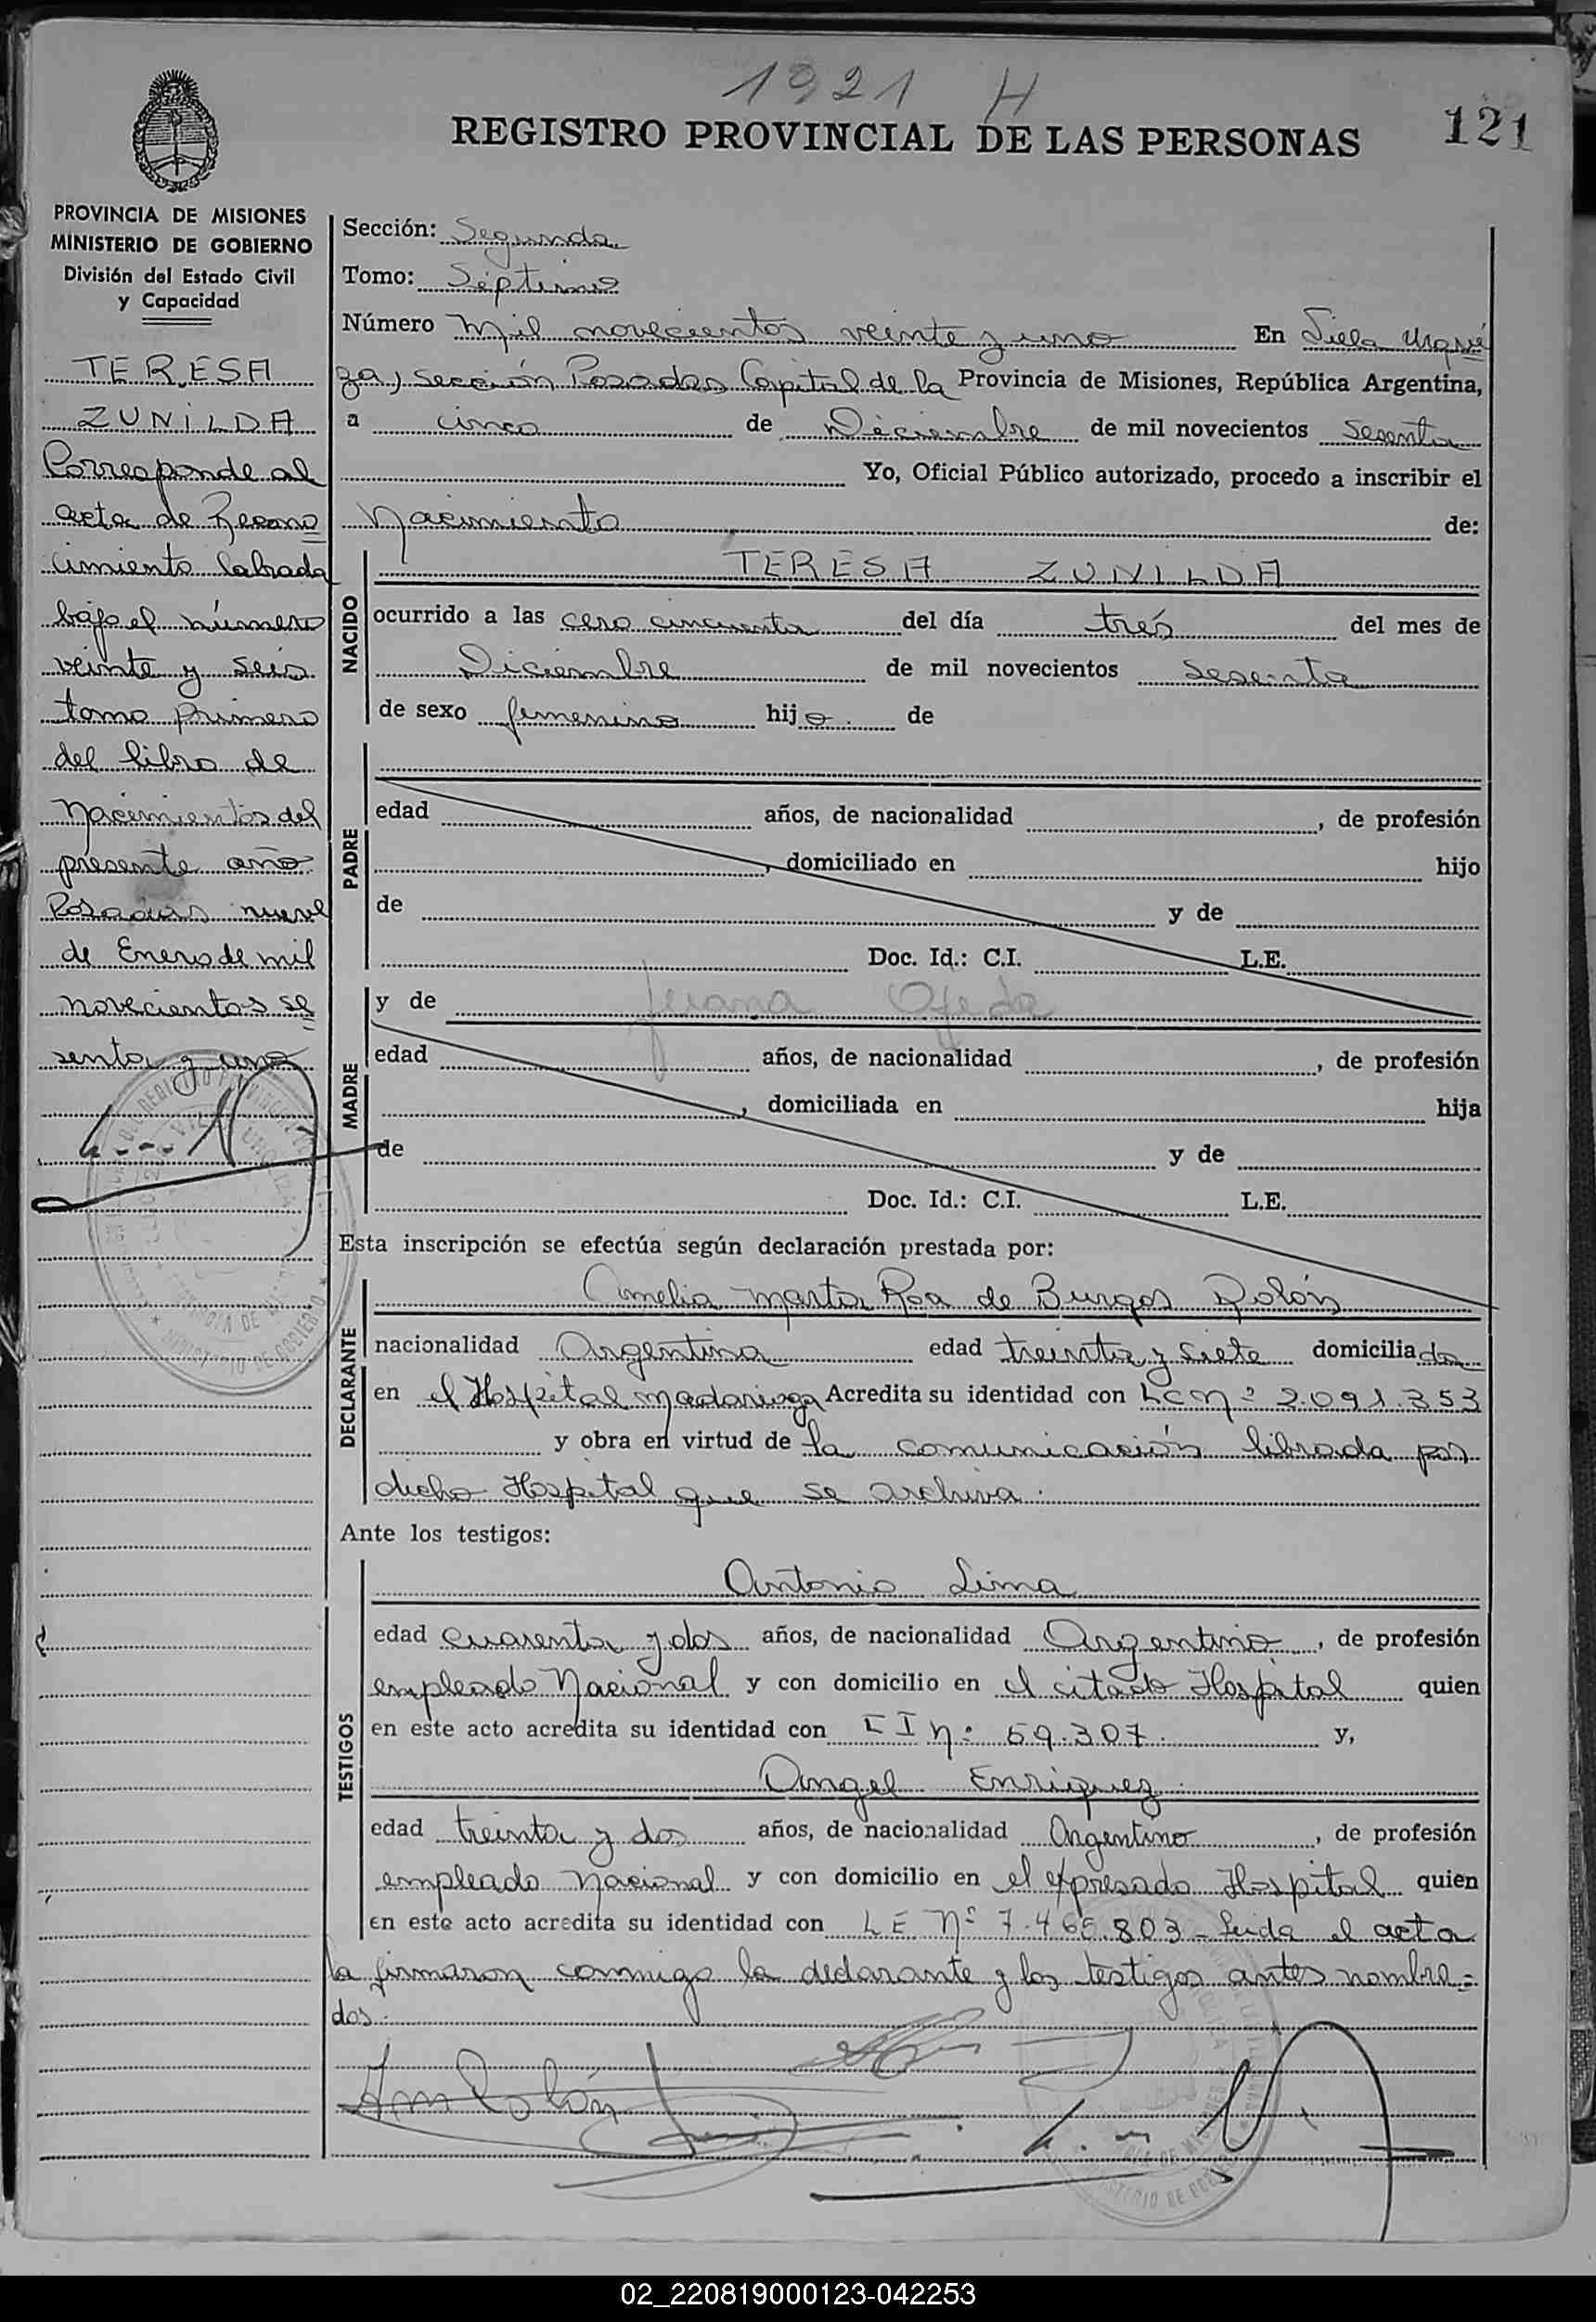 1921 H
REGISTRO PROVINCIAL DE LAS PERSONAS
121
PROVINCIA DE MISIONES
MINISTERIO DE GOBIERNO
División del Estado Civil
y Capacidad
TERESA
ZUNILDA
Corresponde al
acta de Recono
cimiento labrada
bajo el número
veinte y seis
tomo primero
del libro de
Nacimientos del
presente año
Posadas nueve
de Enero de mil
novecientos se
senta y uno
Sección: Segunda
Tomo: Séptimo
Número Mil novecientos veinte y uno En Villa Urquí
za, Sección Posadas Capital de la Provincia de Misiones, República Argentina,
a cinco de Diciembre de mil novecientos sesenta
Yo, Oficial Público autorizado, procedo a inscribir el
Nacimiento de:
NACIDO
TERESA ZUNILDA
ocurrido a las cero cincuenta del día trés del mes de
Diciembre de mil novecientos sesenta
de sexo femenino hija. de
PADRE
edad años, de nacionalidad , de profesión
, domiciliado en hijo
de y de
Doc. Id.: C.I. L.E.
MADRE
y de Juana Ojeda
edad años, de nacionalidad , de profesión
, domiciliada en hija
de y de
Doc. Id.: C.I. L.E.
Esta inscripción se efectúa según declaración prestada por:
DECLARANTE
Amelia Marta Roa de Burgos Dolón
nacionalidad Argentina edad treinta y siete domiciliada
en el Hospital Madariaga Acredita su identidad con LC Nº 2.091.353
y obra en virtud de la comunicación librada por
dicho Hospital que se archiva.
Ante los testigos:
TESTIGOS
Antonio Lima
edad cuarenta y dos años, de nacionalidad Argentino, de profesión
empleado Nacional y con domicilio en el citado Hospital quien
en este acto acredita su identidad con CI Nº 59.307. y,
Angel Enriquez.
edad treinta y dos años, de nacionalidad Argentino, de profesión
empleado Nacional y con domicilio en el expresado Hospital quien
en este acto acredita su identidad con LE Nº 7.465.803 - Leida el acta
la firmaron conmigo la declarante y los testigos antes nombra=
dos.
02_220819000123-042253